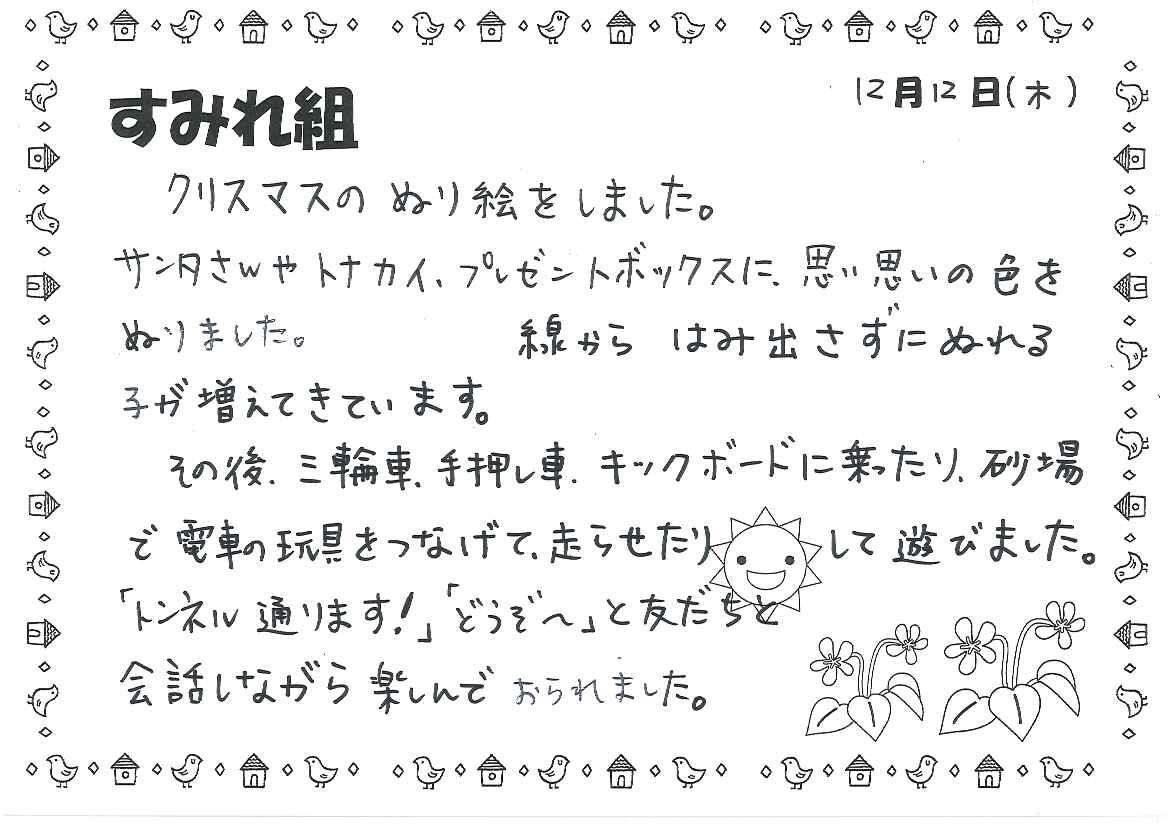 すみれ組
12月12日(木)
クリスマスの ぬり絵をしました。
サンタさんやトナカイ、プレゼントボックスに、思い思いの色を
ぬりました。 線から はみ出さずにぬれる
子が増えてきています。
その後、三輪車、手押し車、キックボードに乗ったり、砂場
で電車の玩具をつなげて、走らせたりして遊びました。
「トンネル通ります!」「どうぞ〜」と友だちと
会話しながら楽しんでおられました。